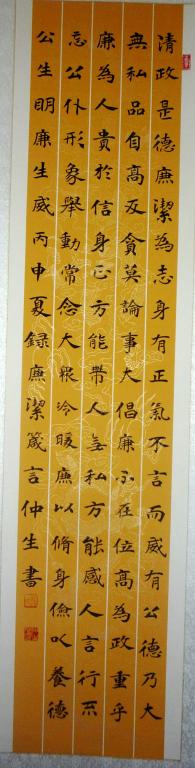 清政是德廉潔為志身有正氣不言而威有公德乃大
無私品自高反貪莫論事大倡廉不在位高為政重乎
廉為人貴於信身正方能帶人無私方能感人言行不
忘公仆形象舉動常念大眾冷暖廉以脩身儉以養德
公生明廉生威丙申夏録廉潔箴言仲生書